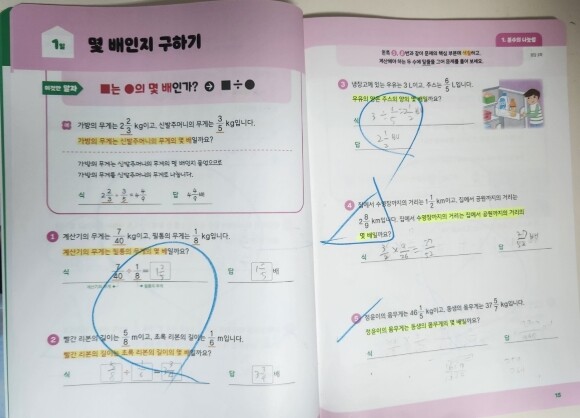 1일
몇 배인지 구하기
이것만 알자
■는 ●의 몇 배인가? → ■÷●
예 가방의 무게는 2 2/3 kg이고, 신발주머니의 무게는 3/5 kg입니다.
가방의 무게는 신발주머니의 무게의 몇 배일까요?
가방의 무게는 신발주머니의 무게로 나눕니다.
식 2 2/3 ÷ 3/5 = 4 4/9 답 4 4/9 배
1 계산기의 무게는 7/40 kg이고, 필통의 무게는 1/8 kg입니다.
계산기의 무게는 필통의 무게의 몇 배일까요?
식 7/40 ÷ 1/8 = 답 배
계산기의 무게 필통의 무게
2 빨간 리본의 길이는 5/8 m이고, 초록 리본의 길이는 1/6 m입니다.
빨간 리본의 길이는 초록 리본의 길이의 몇 배일까요?
식 ÷ = 답 배
1. 분수의 나눗셈
왼쪽 1, 2번과 같이 문제의 핵심 부분에 색칠하고,
계산해야 하는 두 수에 밑줄을 그어 문제를 풀어 보세요.
3 냉장고에 있는 우유는 3 L이고, 주스는 L입니다.
우유의 양은 주스의 양의 몇 배일까요?
식
답
4 집에서 수영장까지의 거리는 1 1/2 km이고, 집에서 공원까지의 거리는
2 8/9 km입니다. 집에서 수영장까지의 거리는 집에서 공원까지의 거리의
몇 배일까요?
식 답
5 정윤이의 몸무게는 46 1/5 kg이고, 동생의 몸무게는 37 5/7 kg입니다.
정윤이의 몸무게는 동생의 몸무게의 몇 배일까요?
식 답
15